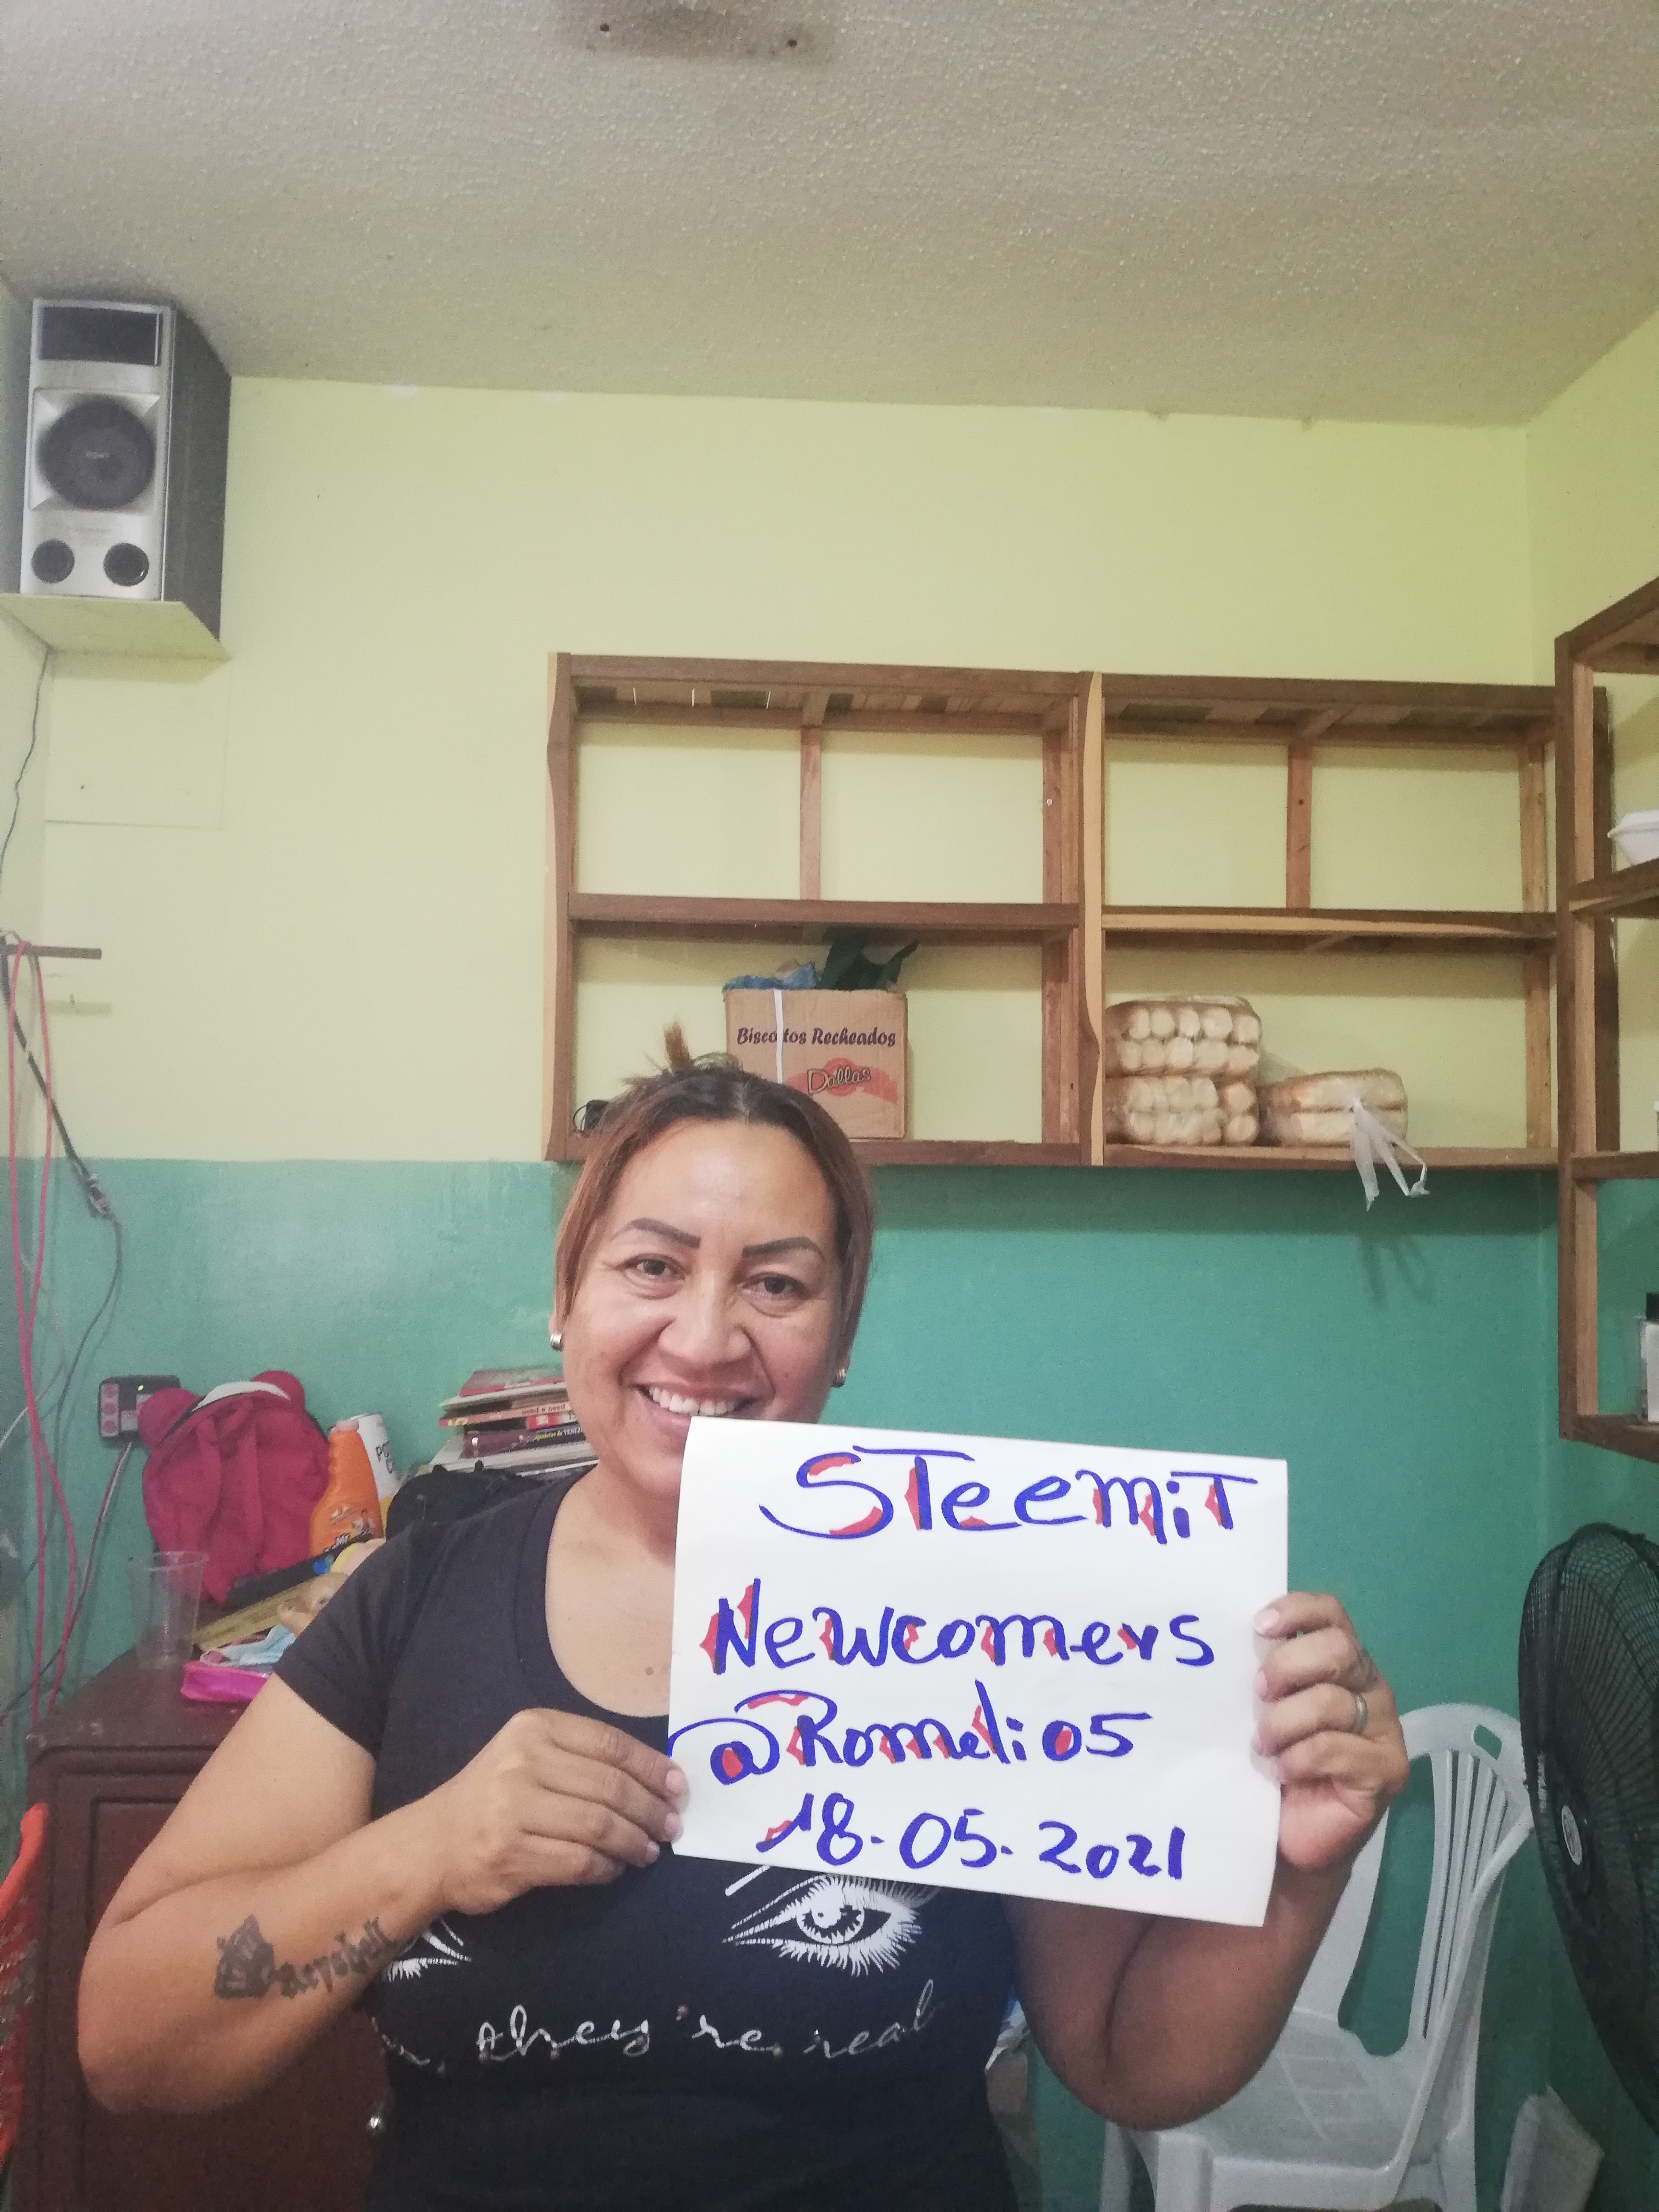 Biscoitos Recheados
Dallas
STeemiT
Newcomers
@Romeli05
18-05-2021
they're real